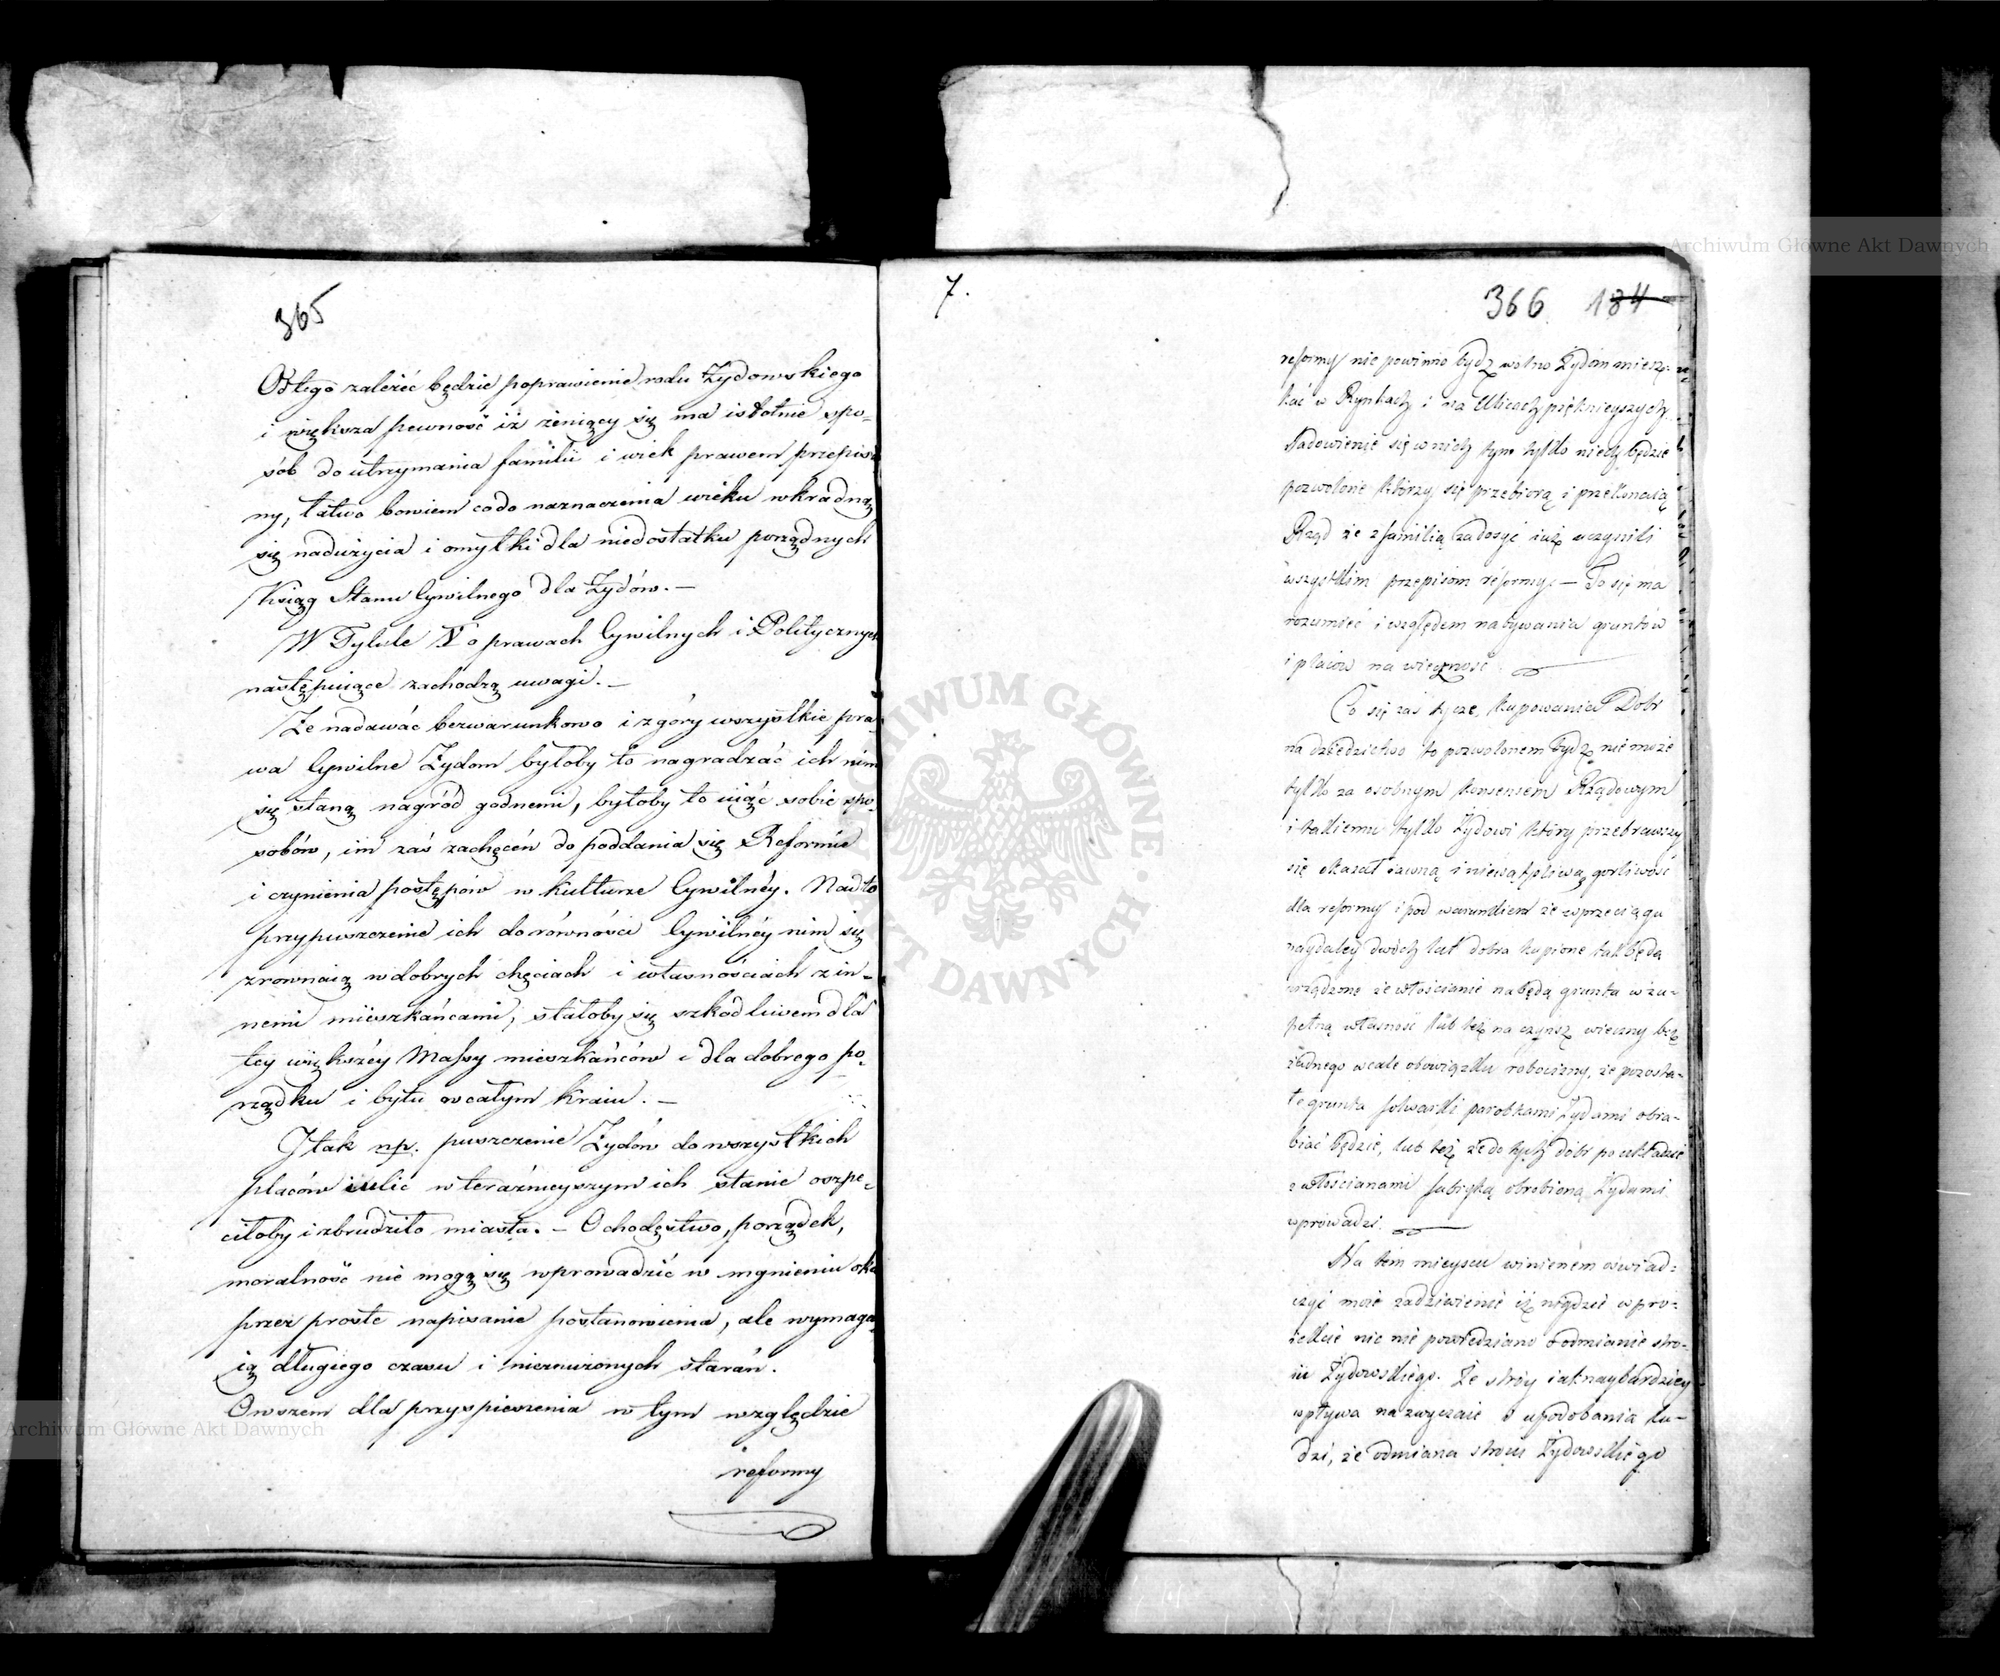 365
Od tego zależéć będzie poprawienie rodu Żydowskiego
i większa pewność iż żeniący się ma istotnie spo-
sób do utrzymania familii i wiek prawem przepisa
ny, łatwo bowiem co do naznaczenia wieku wkradną
się nadużycia i omyłki dla niedostatku porządnych
Xsiąg Stanu Cywilnego dla Żydów. —
W Tytule V o prawach Cywilnych i Politycznych
następuiące zachodzą uwagi. —
Że nadawać bezwarunkowo i z góry wszystkie pra
wa Cywilne Żydom byłoby to nagradzać ich nim
się staną nagród godnemi, byłoby to uiąć sobie spo-
sobów, im zaś zachęceń do poddania się Reformie
i czynienia postępów w kulturze Cywilnéy. Nad to
przypuszczenie ich do równości Cywilnéy nim się
zrównaią w dobrych chęciach i własnościach z in-
nemi mieszkańcami, stałoby się szkodliwem dla
tey większéy Massy mieszkańców i dla dobrego po-
rządku i bytu w całym kraiu. —
I tak np. puszczenie Żydów do wszystkich
placów i ulic w teraźnieyszym ich stanie oszpe-
ciłoby i zbrudziło miasta. — Ochędóstwo, porządek,
moralność nie mogą się wprowadzić w mgnieniu oka
przez proste napisanie postanowienia, ale wymaga
ią długiego czasu i nieznużonych starań.
Owszem dla przyspieszenia w tym względzie
reformy
7.
366 184
reformy nie powinno bydź wolno Żydom miesz-
kać w Rynkach i na Ulicach pięknieyszych
Sadowienie się w nich tym tylko niech będzie
pozwolone którzy się przebiorą i przekonaią
Rząd że z familią zadosyć iuż uczynili
wszystkim przepisom reformy. — To się ma
rozumieć i względem nabywania gruntów
i placów na wieczność.
Co się zaś tycze, kupowania Dobr
na dziedzictwo to pozwolonem bydź nie może
tylko za osobnym konsensem Rządowym
i takiemu tylko Żydowi który przebrawszy
się okazał iawną i niewątpliwą gorliwość
dla reformy i pod warunkiem że w przeciągu
naydaley dwóch lat dobra kupione tak będą
urządzone że włościanie nabędą grunta w zu-
pełną własność lub też na czynsz wieczny bez
żadnego wcale obowiązku robocizny, że pozosta-
łe grunta folwarki parobkami Żydami obra-
biać będzie, lub też że do tych dóbr po układzie
z włościanami fabrykę obrobioną Żydami
wprowadzi.
Na tém mieyscu winienem oświad-
czyć moie zadziwienie iż nigdzie w pro-
iekcie nic nie powiedziano o odmianie stro-
iu Żydowskiego. Że stróy iak naybardziey
wpływa na zwyczaie i upodobania lu-
dzi, że odmiana stroiu Żydowskiego